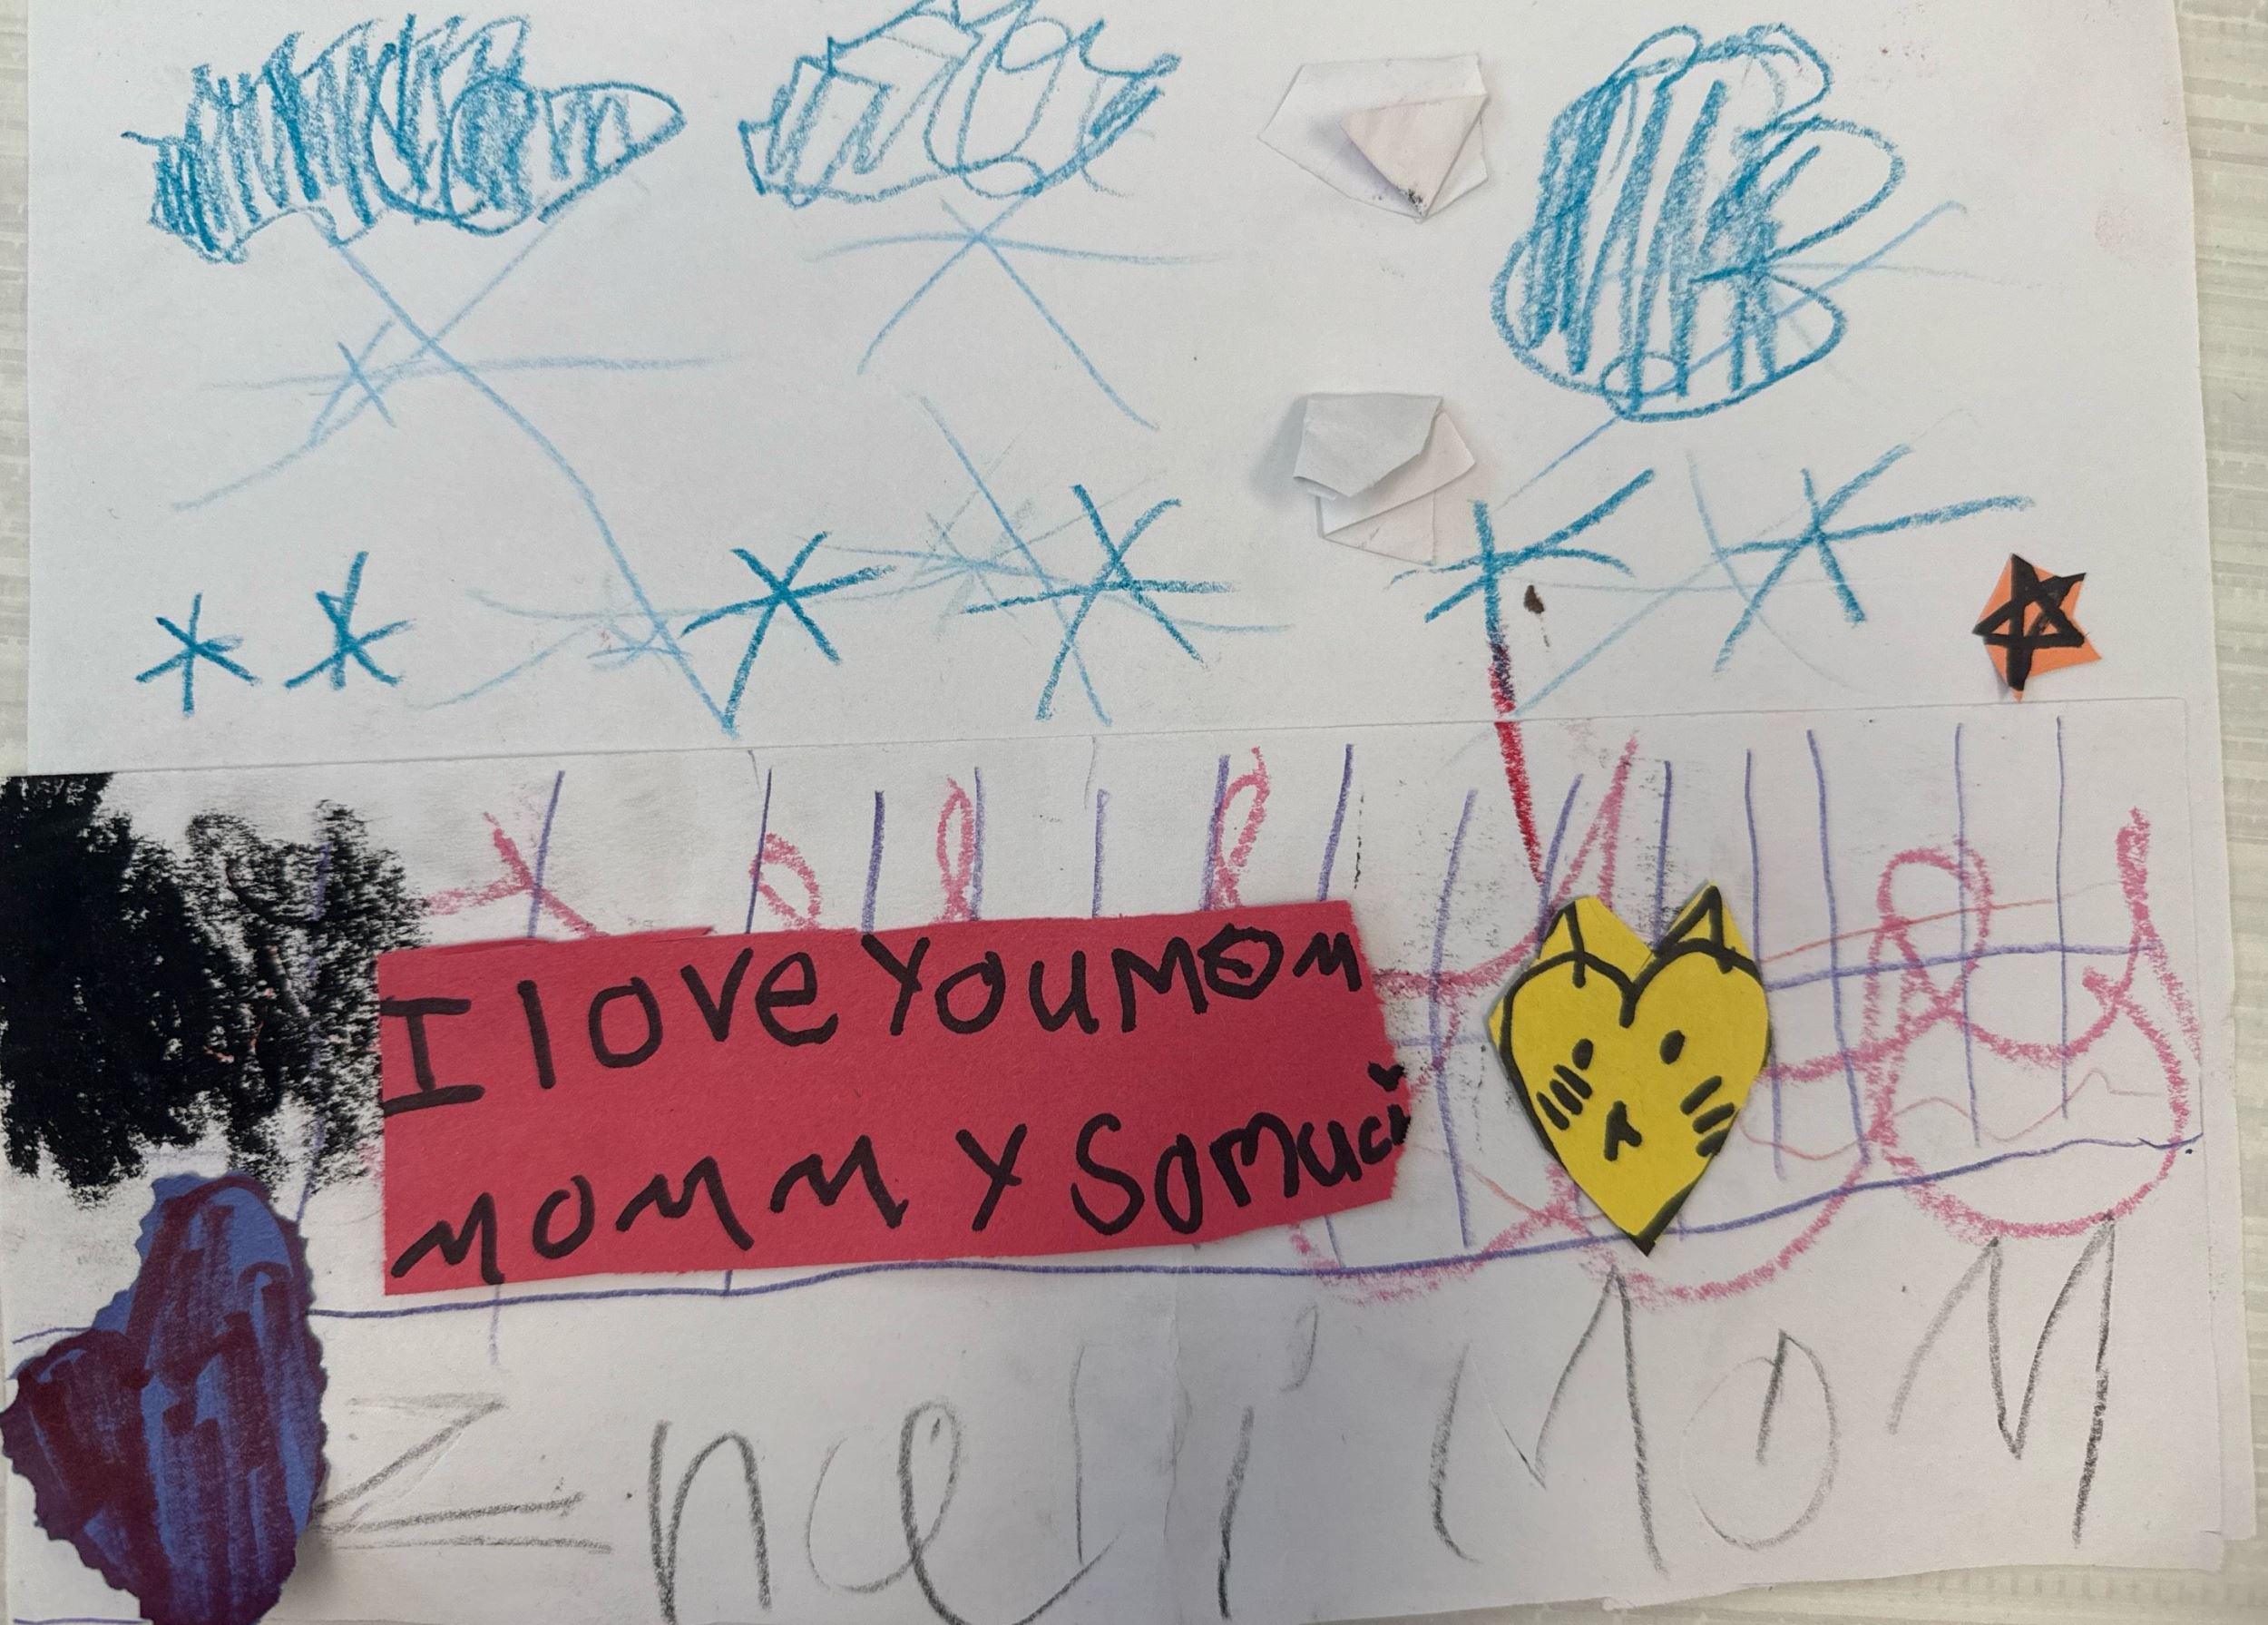 I love you mom
mommy so muc
mom